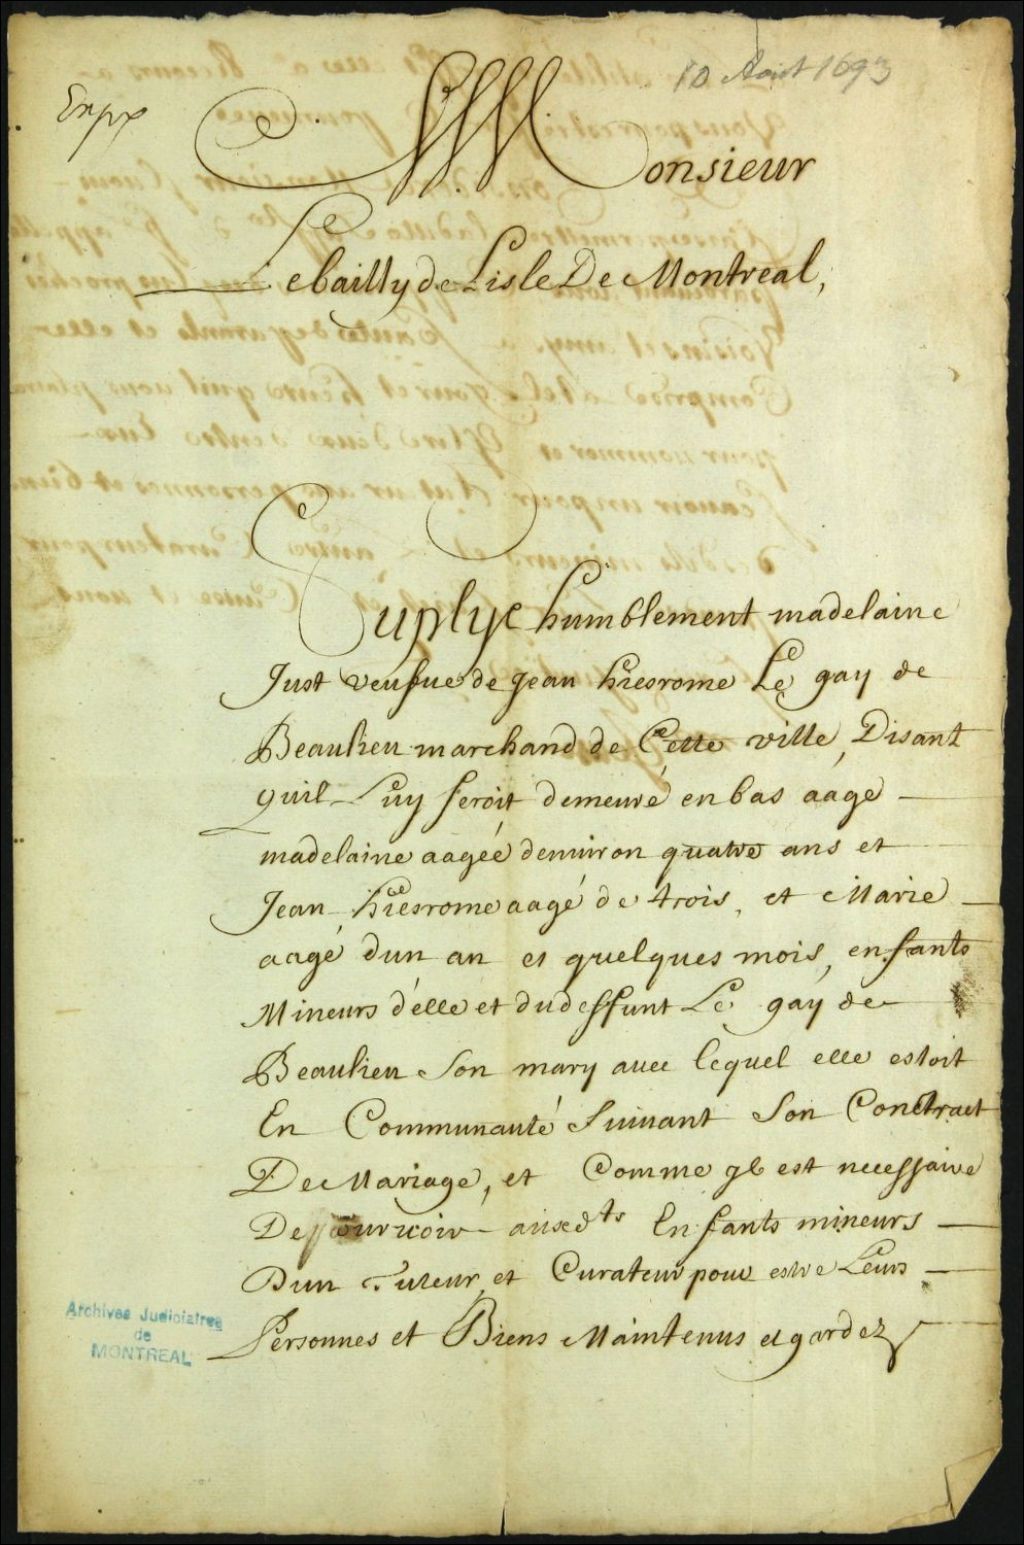 10 Aout 1693
Monsieur
Le bailly de Lisle De Montreal,
Suplye humblement madelaine
Just veufue de Jean hiesrome Le gay de
Beaulieu marchand de Cette ville, Disant
quil Luy seroit demeuré en bas aage
madelaine aagée denuiron quatre ans et
Jean hiesrome aagé de trois, et Marie
aagé dun an et quelques mois, enfants
Mineurs d'elle et dudeffunt Le gay de
Beaulieu Son mary auec lequel elle estoit
En Communauté Suiuant Son Contract
De Mariage, et Comme jl est necessaire
De pouruoir auxdts Enfants mineurs
Dun Tuteur et Curateur pour estre Leurs
Personnes et Biens Maintenus et gardez
Archives Judiciaires
de
MONTREAL